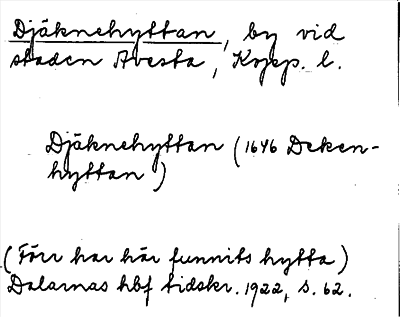 Djäknehyttan, by vid
staden Avesta, Kopp. l.
Djäknehyttan (1646 Deken-
hyttan)
(Förr har här funnits hytta)
Dalarnas hbf tidskr. 1922, s. 62.